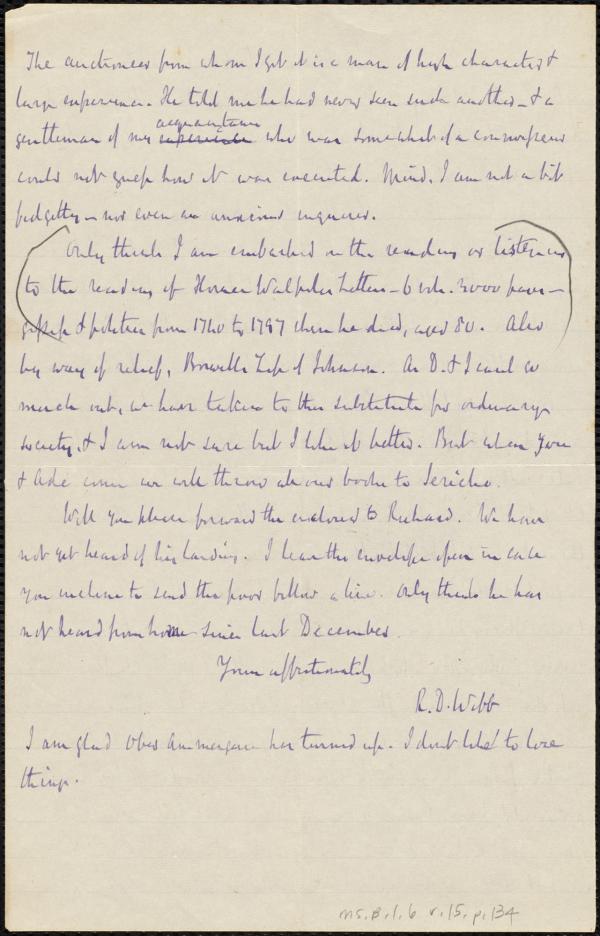 The auctioneer from whom I got it is a man of high character &
large experience. He told me he had never seen such another - & a
acquaintance
gentleman of my experience who was somewhat of a connoisseur
could not guess how it was executed. Mind, I am not a bit
fidgetty - nor even an anxious enquirer.
Only think I am embarked on the reading or listening
to the reading of Horace Walpole's Letters - 6 vols. 3000 pages -
gossip & politics from 1740 to 1797 when he died, aged 80. Also
by way of relief, Boswell's Life of Johnson. As D. & I can't go
much out, we have taken to this substitute for ordinary
society, & I am not sure but I like it better. But when you
& Ade come we will throw all our books to Jericho.
Will you please forward the enclosed to Richard. We have
not yet heard of his landing. I leave the envelope open in case
you incline to send the poor fellow a line. Only think he has
not heard from home since last December.
Yours affectionately
R. D. Webb
I am glad Ober Ammergau has turned up. I don't like to lose
things.
ms. B. 1. 6 v. 15, p. 134